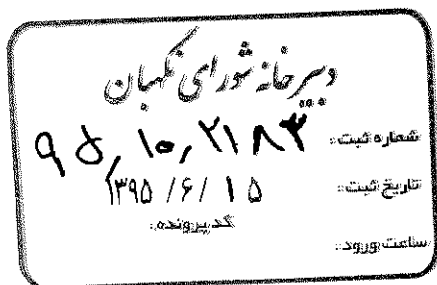 دبیرخانه شورای نگهبان
شماره ثبت: ۹۵٫۱۰٫۲۱۸۳
تاریخ ثبت: ۱۳۹۵/۶/۱۵
کد پرونده:
ساعت ورود: